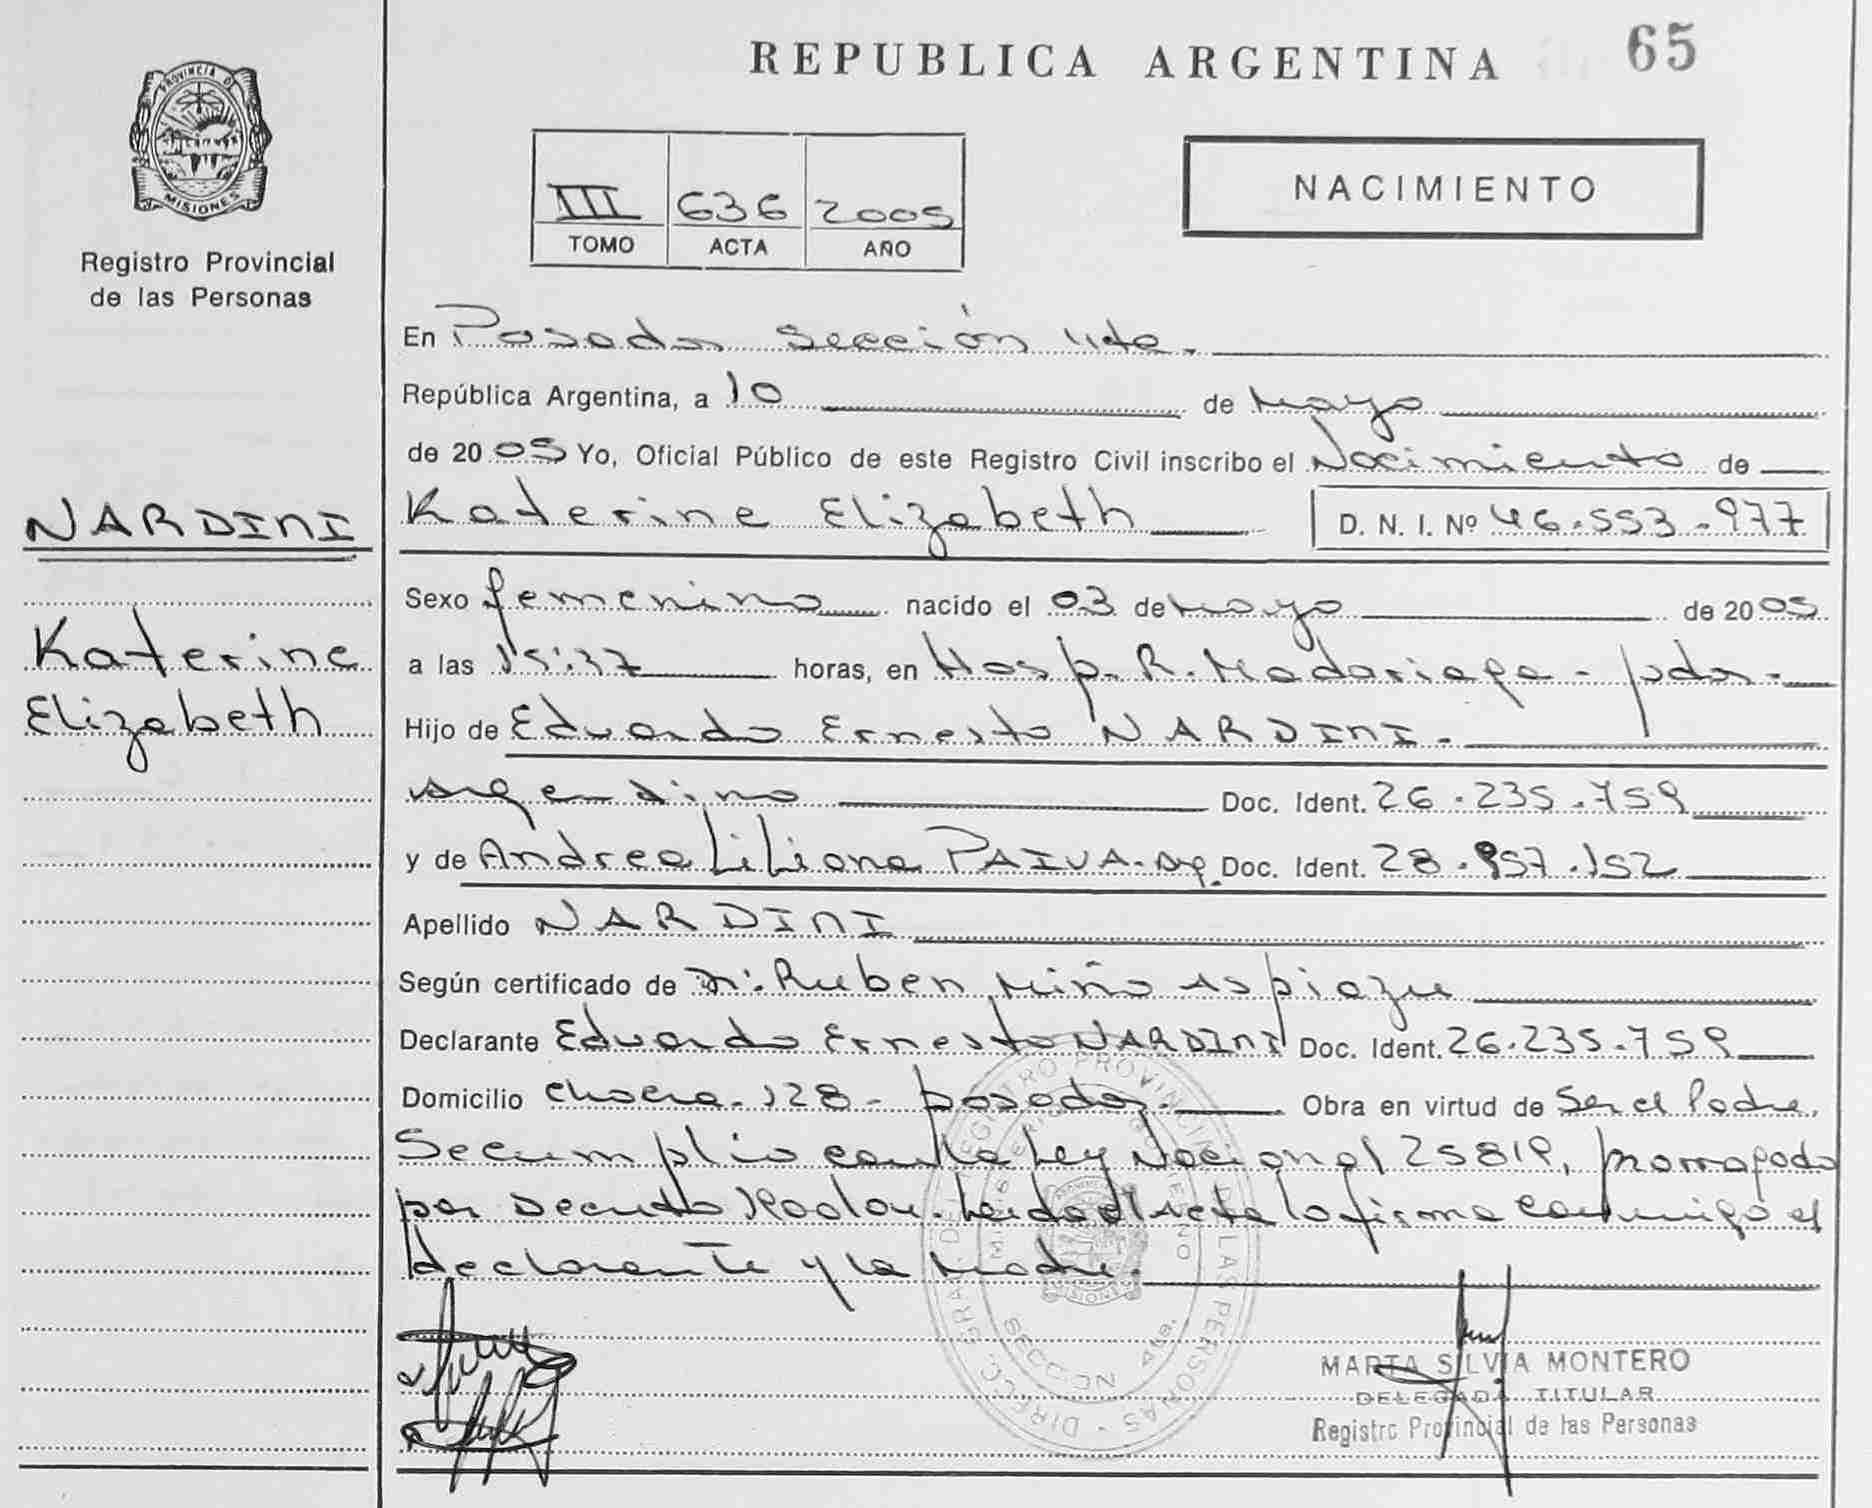 REPUBLICA ARGENTINA
65
PROVINCIA DE
MISIONES
Registro Provincial
de las Personas
III 636 2005
TOMO ACTA AÑO
NACIMIENTO
En Posadas Sección 4ta.
República Argentina, a 10 de Mayo
de 2005 Yo, Oficial Público de este Registro Civil inscribo el Nacimiento de
NARDINI
Katerine Elizabeth D. N. I. Nº 46.553.977
Sexo femenino nacido el 03 de Mayo de 2005
Katerine
Elizabeth
a las 15:37 horas, en Hosp. R. Madariaga - pdas.
Hijo de Eduardo Ernesto NARDINI.
Argentino Doc. Ident. 26.235.759
y de Andrea Liliana PAIVA-Arg. Doc. Ident. 28.957.152
Apellido NARDINI
Según certificado de Dr. Ruben Miño Aspiazu
Declarante Eduardo Ernesto NARDINI Doc. Ident. 26.235.759
Domicilio Chacra 128 - Posadas. Obra en virtud de Ser el Padre,
Se cumplio con la Ley Nacional 25819, prorrogada
por Decreto Leida el Acta la firma conmigo el
declarante y la Madre.
DIRECC. GRAL. DEL REGISTRO PROVINCIAL DE LAS PERSONAS
MINISTERIO DE GOBIERNO
SECCION 4ta.
MISIONES
MARTA SILVIA MONTERO
DELEGADA TITULAR
Registro Provincial de las Personas